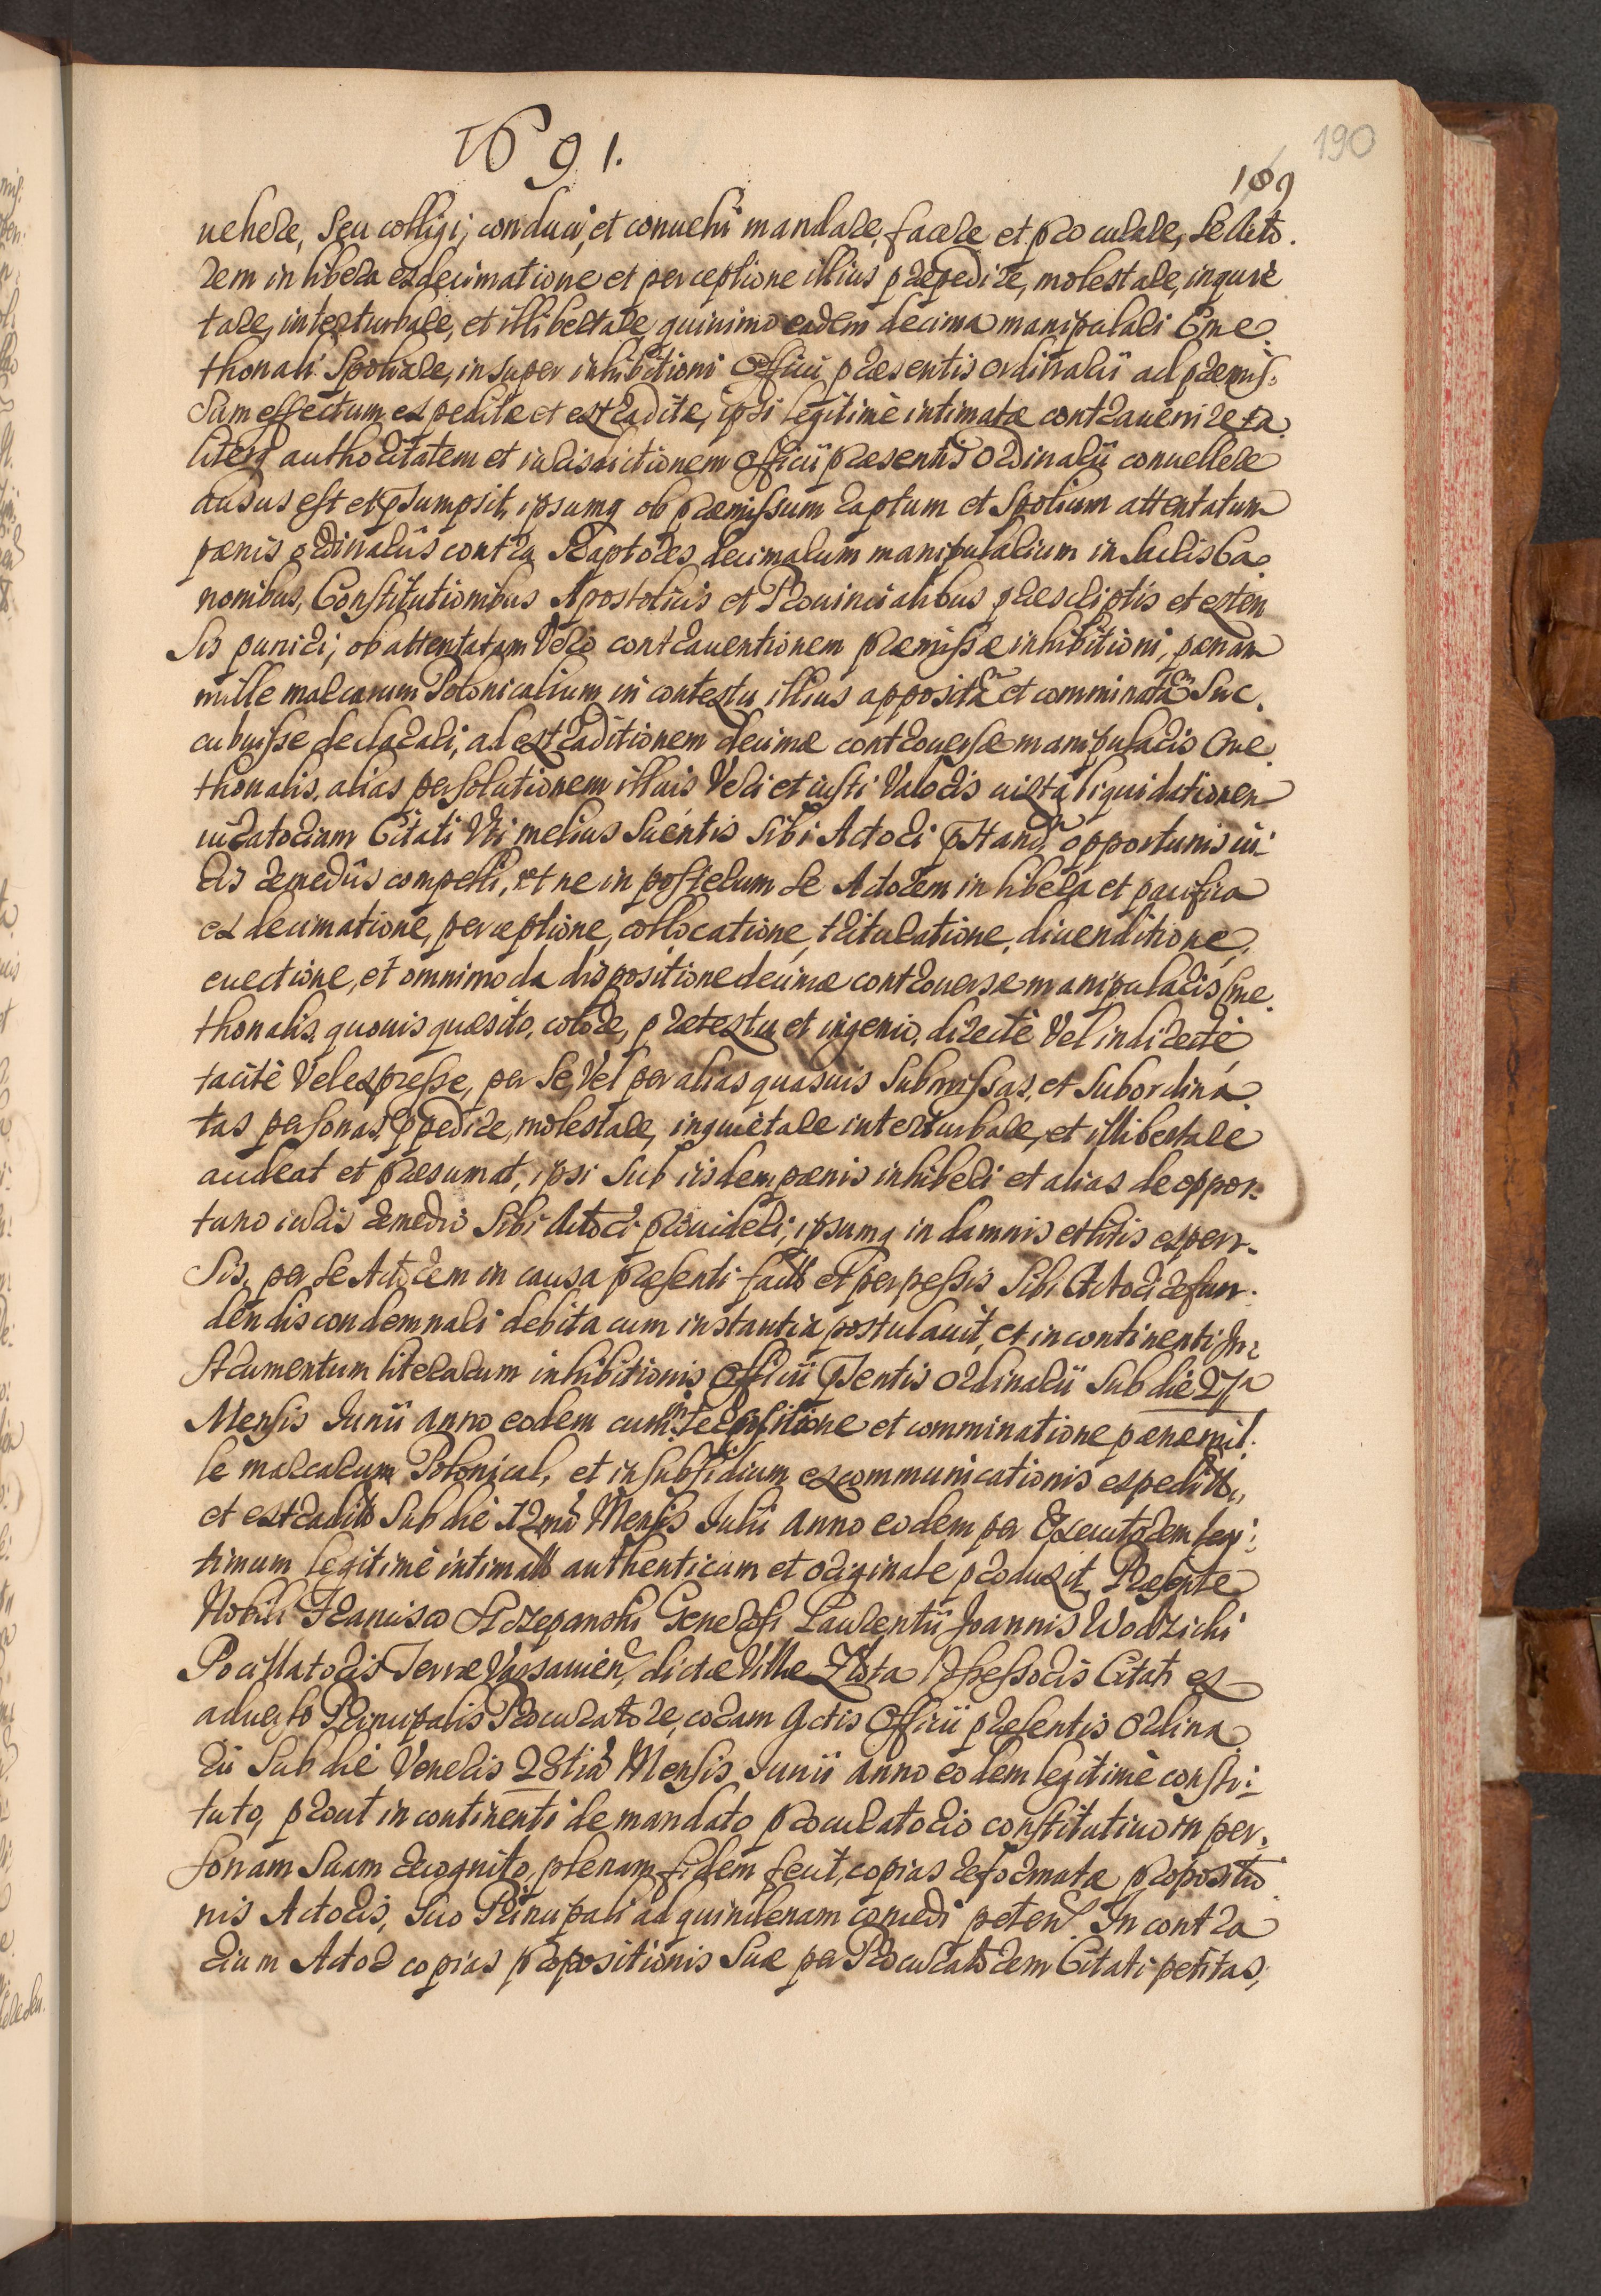 1691.
190
189
uehere, seu colligi, conduci, et conuehi mandare, facere et procurare, se Acto.
rem in libera exdecimatione et perceptione illius præpedire, molestare, inquie
tare, interturbare, et illibertare, quinimo eadem decima manipulari Cme.
thonali Spoliare, insuper inhibitioni Officii præsentis ordinarii ad præmis.
sum effectum expeditæ et extraditæ, ipsi legitimè intimatæ contrauenire ta.
literq authoritatem et iurisdictionem Officii præsentis Ordinarii conuellere
ausus est et psumpsit, ipsumq ob præmissum raptum et Spolium attentatum
pænis ordinariis contra Raptores decimarum manipularium in Sacris Ca.
nonibus, Constitutionibus Apostolicis et Prouincialibus præscriptis et exten
sis puniri, ob attentatam Vero contrauentionem præmissæ inhibitioni, pænam
mille marcarum Polonicalium in contextu illius apposità et comminatà Suc.
cubuisse declarari, ad extraditionem decimæ controuersæ manipularis Cme.
thonalis, alias persolutionem illius Veri et iusti Valoris iuxta liquidationem
iuratoriam Citati Uti melius Scientis Sibi Actori pstand opportunis iu:
ris remediis compelli, et ne in posterum se Actorem in libera et pacifica
exdecimatione, perceptione, collocatione, trituratione, diuenditione,
euectione, et omnimoda dispositione decimæ controuersæ manipularis Cme.
thonalis, quouis quæsito, colore, prætextu et ingenio, directè Vel indirectè
tacitè Vel expresse, per Se, Vel per alias quasuis Submissas, et Subordina.
tas personas, ppedire, molestare, inquietare interturbare, et illibertare
audeat et præsumat, ipsi Sub iisdem pænis inhiberi et alias de oppor.
tuno iuris remedio Sibi Actori prouideri, ipsumq in damnis et litis expen.
sis, per se Actorem in causa præsenti factis et perpessis Sibi Actori refun.
dendis condemnari debita cum instantia postulauit, et in continenti In.
strumentum literarum inhibitionis Officii psentis Ordinarii Sub die 27a
Mensis Iunii anno eodem cum interpositione et comminatione pænæ mil.
le marcarum Polonical, et in subsidium excommunicationis expeditis,
et extraditis Sub die 12ma Mensis Iulii anno eodem per Executorem legi:
timum legitimè intimatis authenticum et originale produxit, Præsente
Nobili Francisco Szczepanski Generosi Laurentii Joannis Wodzicki
Pocillatoris Terræ Varsauien, dictæ Villæ Zlota Possessoris Citati ex
aduerso Principalis Procuratore, coram Actis Officii præsentis Ordina
rii Sub die Veneris 28tia Mensis Iunii anno eodem legitimè consti:
tuto, prout in continenti de mandato procuratorio constitutiuo in per.
sonam Suam recognito, plenam fidem fecit, copias reformatæ propositio
nis Actoris, Suo Principali ad quindenam concedi peten. In contra
rium Actor copias propositionis Suæ per Procuratorem Citati petitas,